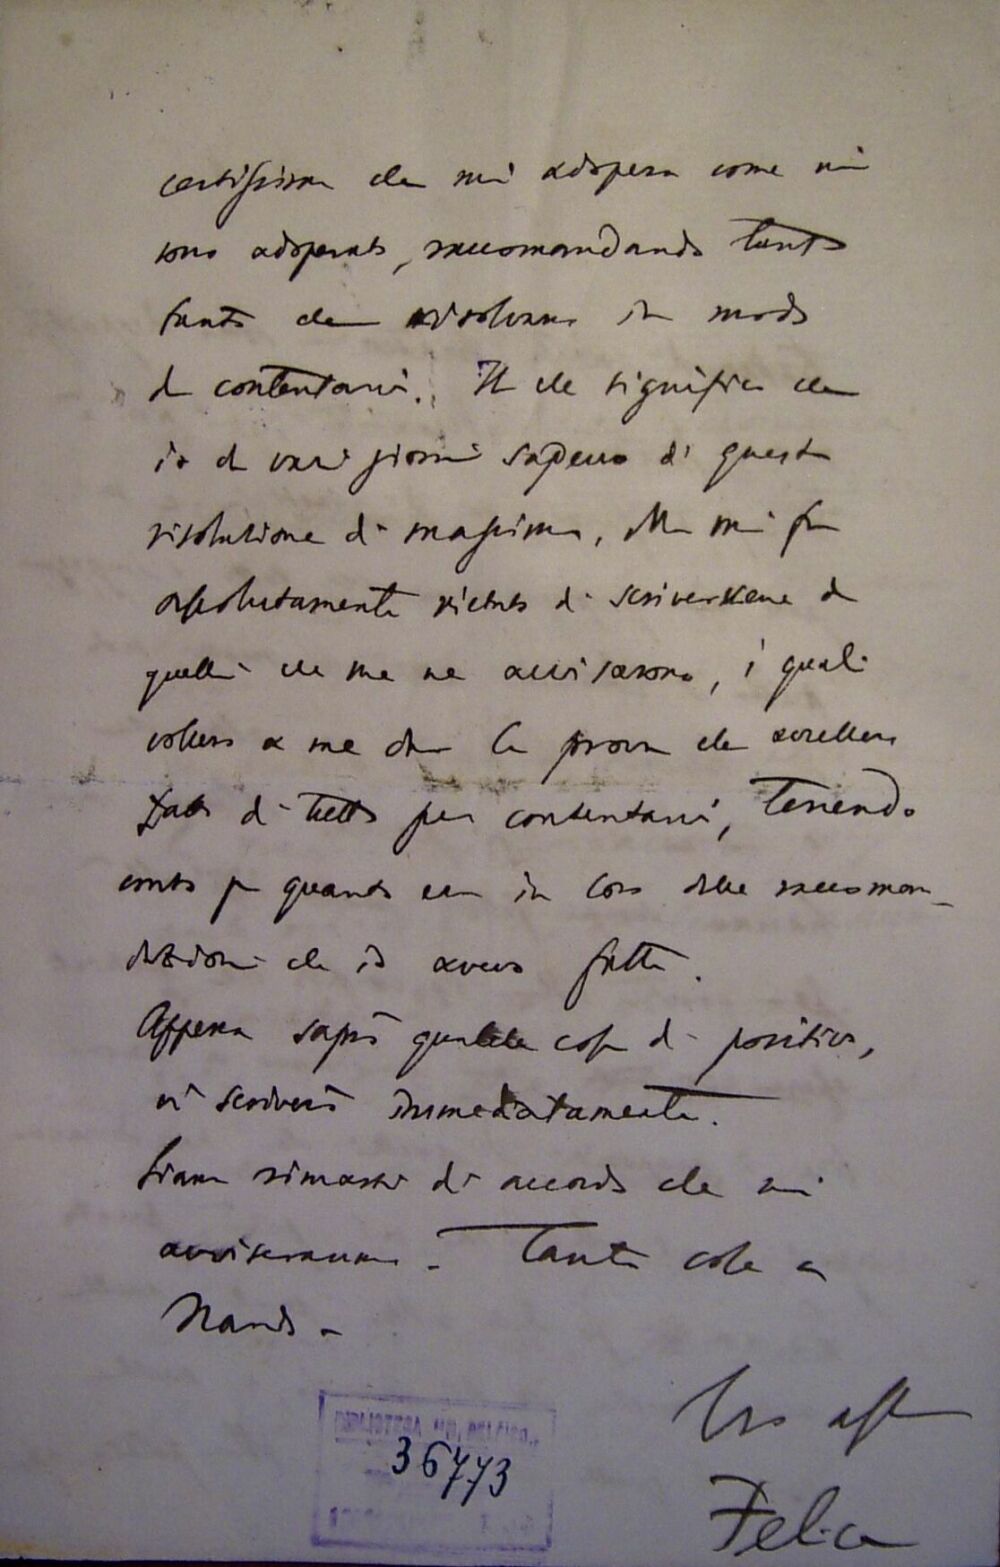 certissima che mi adopera come mi
sono adoperato, raccomandando tanto
tanto che risolvano in modo
da contentarvi. Il che significa che
io da vari giorni sapevo di questa
risoluzione di massima, Ma mi fu
assolutamente vietato di scrivervene da
quelli che me ne avvisarono, i quali
vollero a me dar la prova che avrebbero
fatto di tutto per contentarvi, tenendo
conto per quanto era in loro delle raccoman-
dazioni che io avevo fatte.
Appena saprò qualche cosa di positivo,
vi scriverò immediatamente.
Siamo rimasti di accordo che mi
avviseranno. Tante cose a
Nando.
Vro aff
Felice
BIBLIOTECA
36773